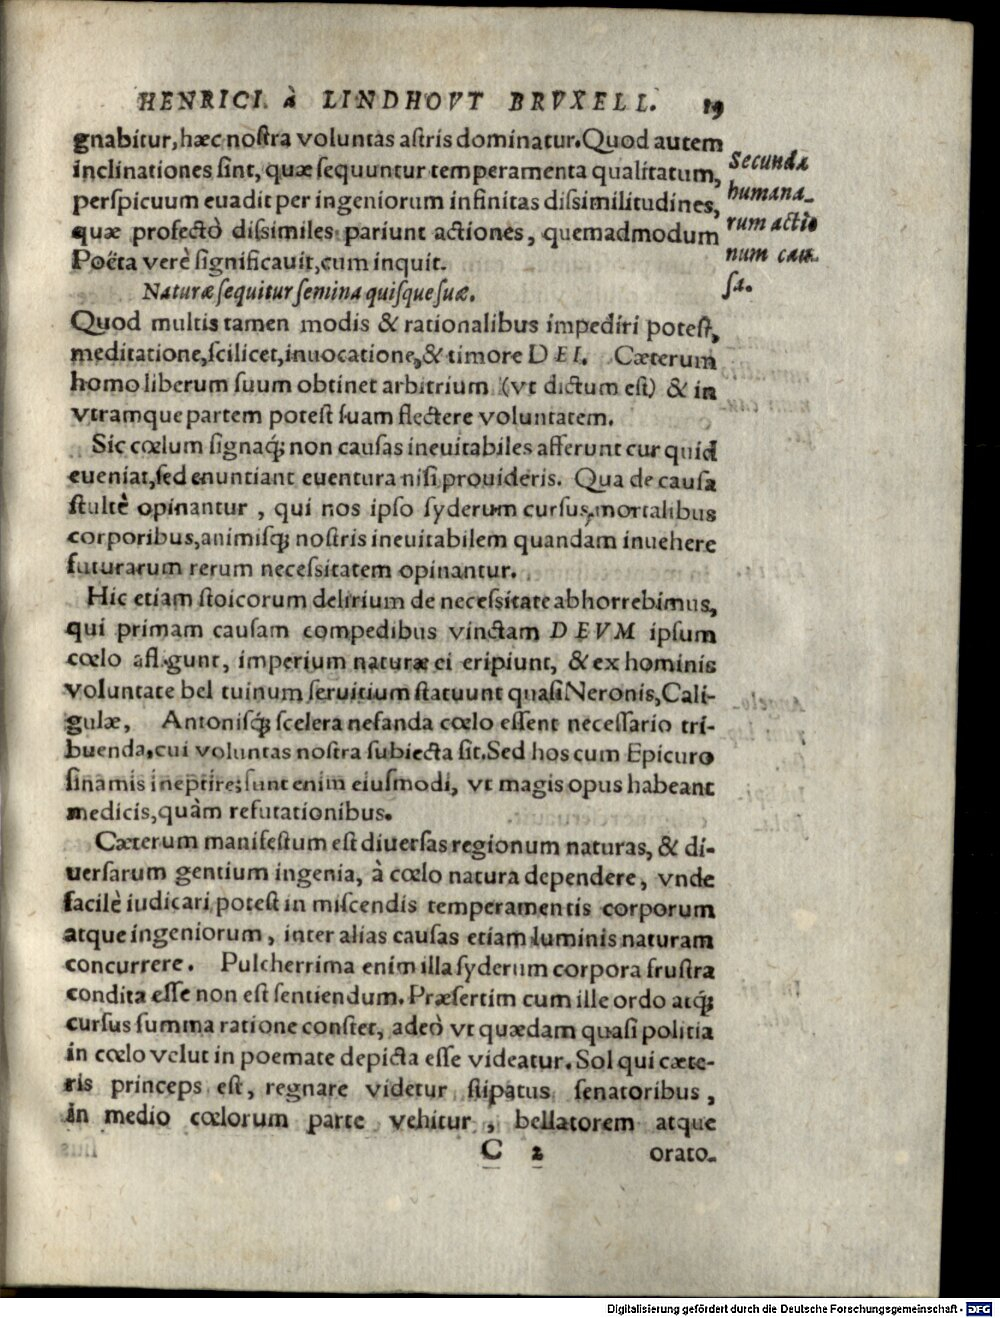 HENRICI à LINDHOVT BRVXELL. 19
gnabitur, hæc nostra voluntas astris dominatur. Quod autem
inclinationes sint, quæ sequuntur temperamenta qualitatum,
perspicuum euadit per ingeniorum infinitas dissimilitudines,
quæ profectò dissimiles pariunt actiones, quemadmodum
Poëta verè significauit, cum inquit.
Secunda
humana-
rum actio
num cau-
sa.
Naturæ sequitur semina quisque suæ.
Quod multis tamen modis & rationalibus impediri potest,
meditatione, scilicet, inuocatione, & timore DEI. Cæterum
homo liberum suum obtinet arbitrium (vt dictum est) & in
vtramque partem potest suam flectere voluntatem.
Sic cœlum signaq; non causas ineuitabiles afferunt cur quid
eueniat, sed enuntiant euentura nisi prouideris. Qua de causa
stultè opinantur, qui nos ipso syderum cursus, mortalibus
corporibus, animisq; nostris ineuitabilem quandam inuehere
futurarum rerum necessitatem opinantur.
Hic etiam stoicorum delirium de necessitate abhorrebimus,
qui primam causam compedibus vinctam DEVM ipsum
cœlo afligunt, imperium naturæ ei eripiunt, & ex hominis
voluntate bel tuinum seruitium statuunt quasi Neronis, Cali-
gulæ, Antonisq; scelera nefanda cœlo essent necessario tri-
buenda, cui voluntas nostra subiecta sit. Sed hos cum Epicuro
sinamis ineptire; sunt enim eiusmodi, vt magis opus habeant
medicis, quàm refutationibus.
Cæterum manifestum est diuersas regionum naturas, & di-
uersarum gentium ingenia, à cœlo natura dependere, vnde
facilè iudicari potest in miscendis temperamentis corporum
atque ingeniorum, inter alias causas etiam luminis naturam
concurrere. Pulcherrima enim illa syderum corpora frustra
condita esse non est sentiendum. Præsertim cum ille ordo atq;
cursus summa ratione constet, adeò vt quædam quasi politia
in cœlo velut in poemate depicta esse videatur. Sol qui cæte-
ris princeps est, regnare videtur stipatus senatoribus,
in medio cœlorum parte vehitur, bellatorem atque
C 2 orato-
Digitalisierung gefördert durch die Deutsche Forschungsgemeinschaft - DFG